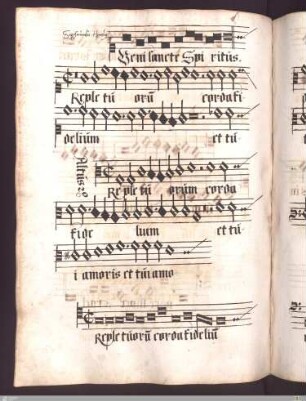 Veni sancte Spi ritus.
Reple tu oru cordafi
delium et tu
Altus 2us
Reple tu orum corda
fide lium et tu
i amoris et tui amo
Reple tuoru corda fideliu